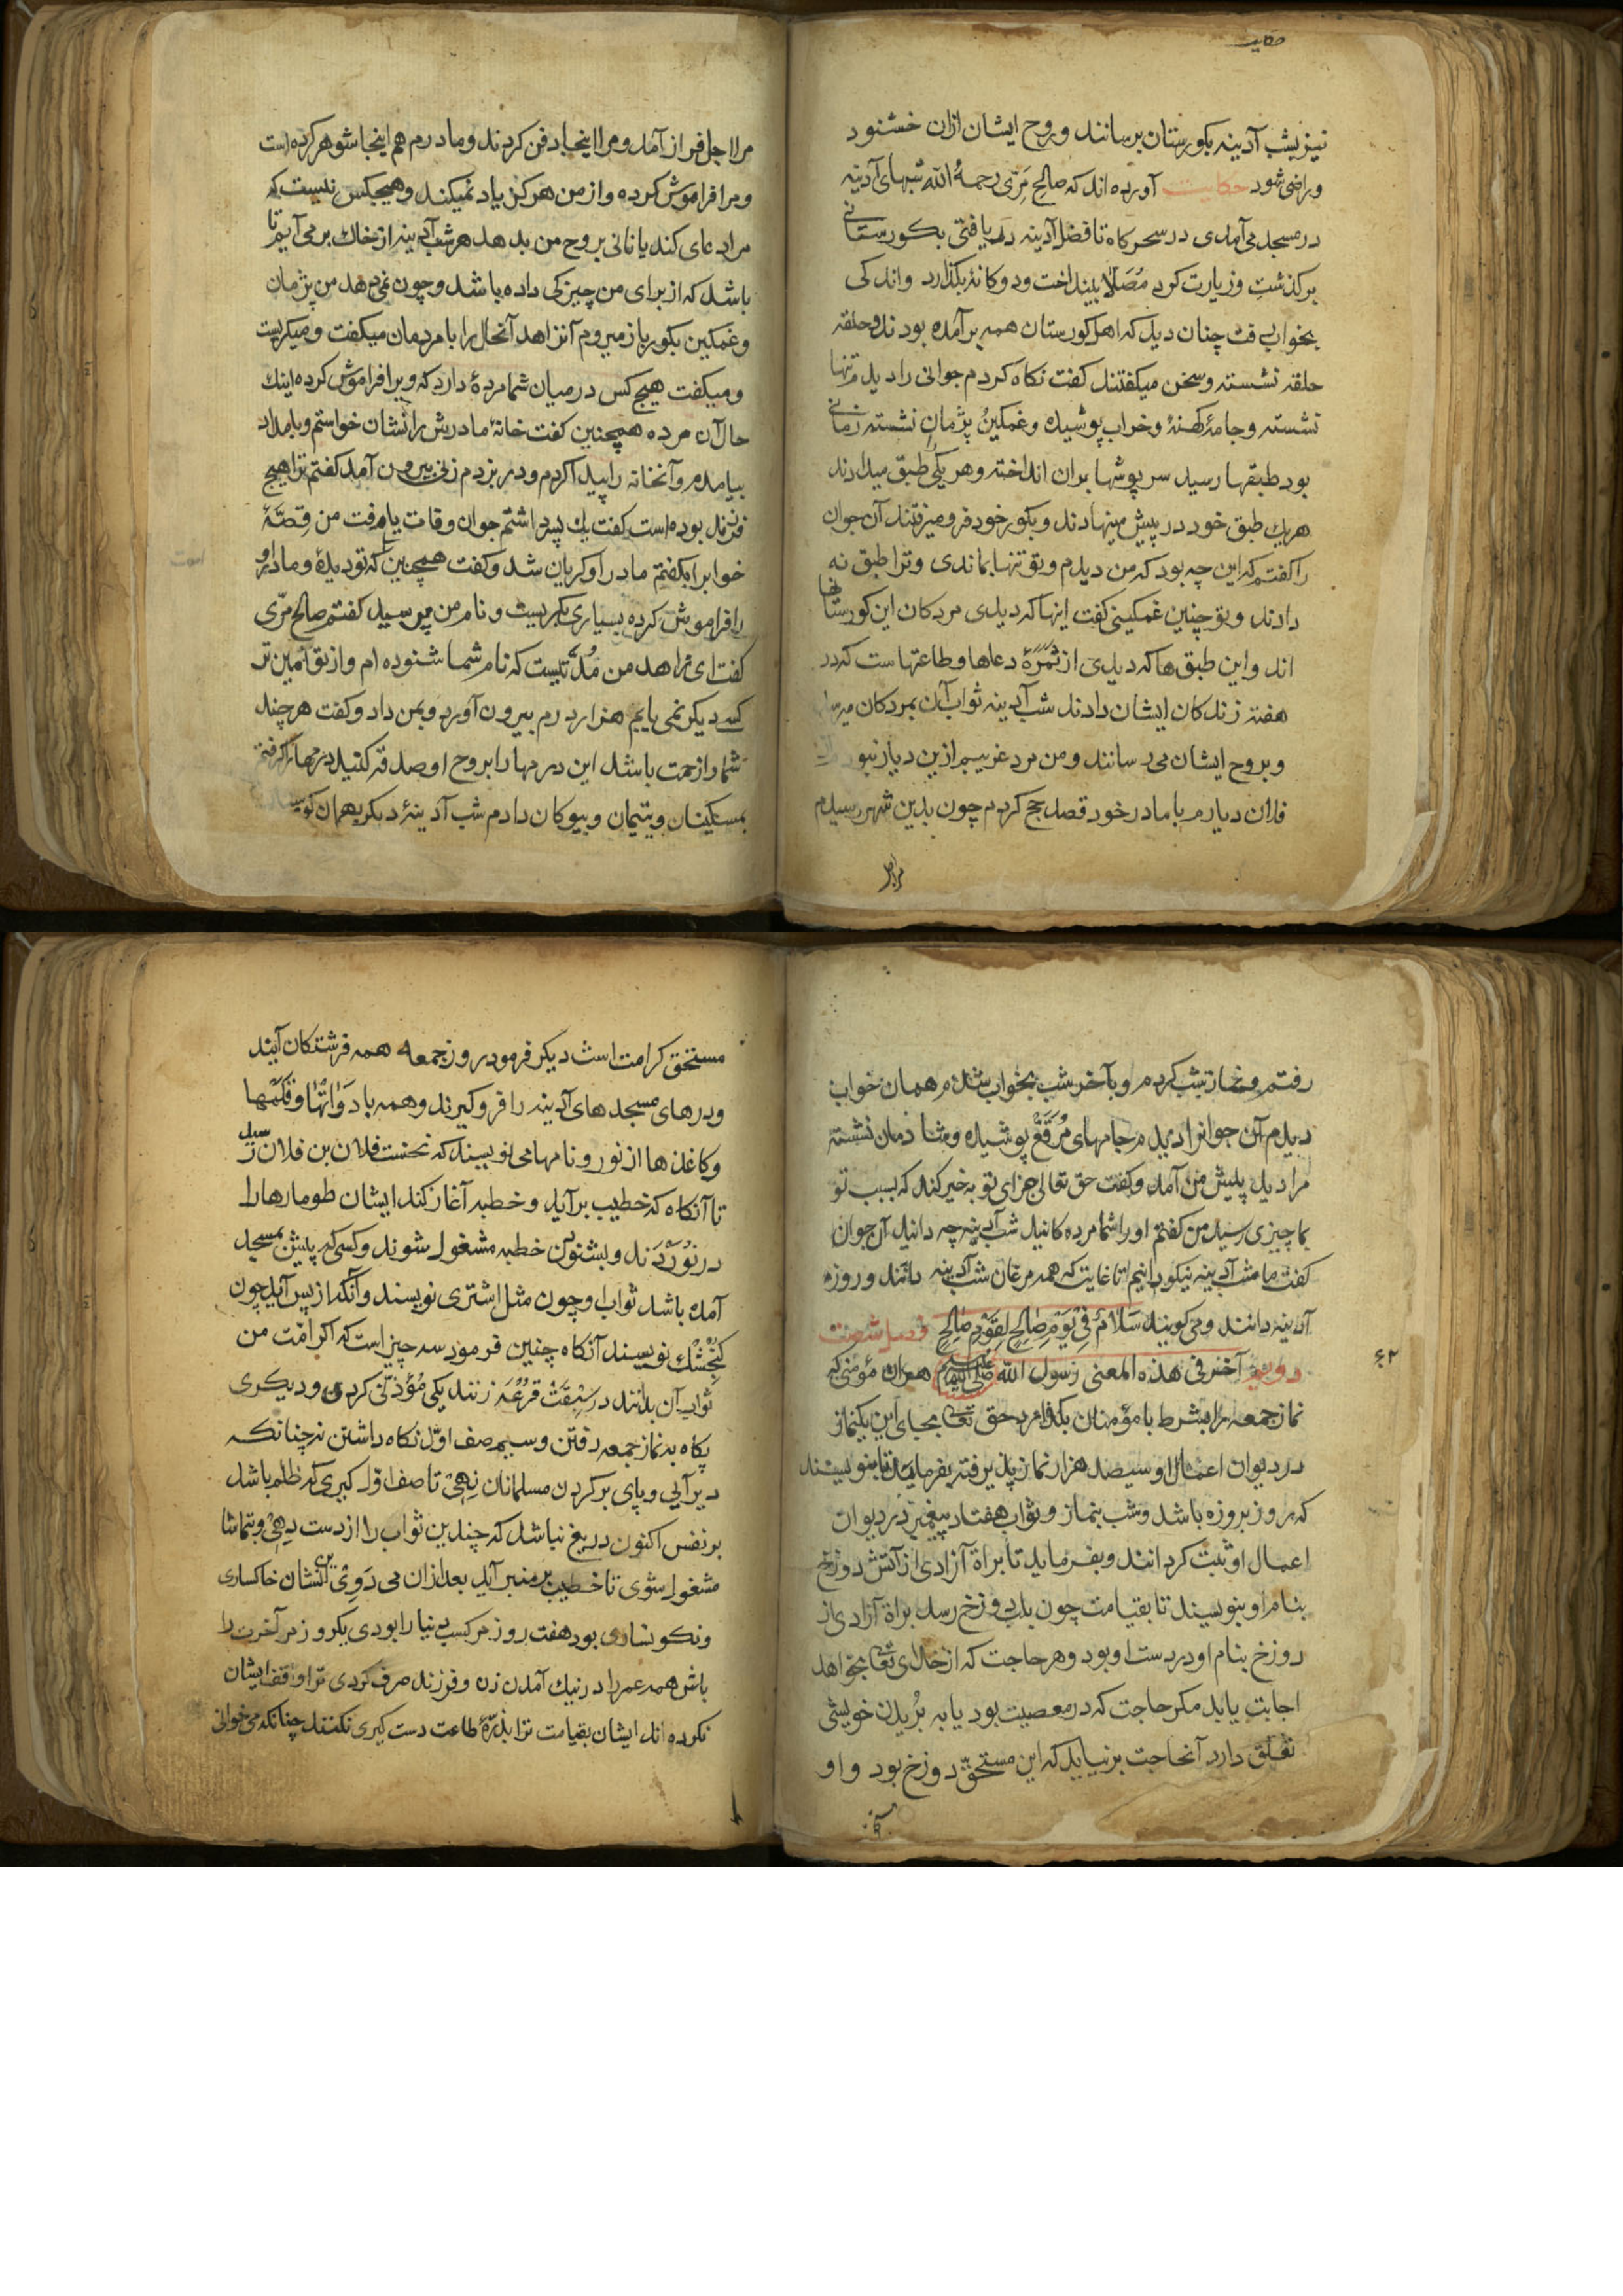 حکایت
نیز بشب آدینه بکورستان برسانند وروح ایشان ازان خشنود
وراضی شود حکایت آورده اند که صالح مرّی رحمة الله شبهای آدینه
در مسجد می آمدی در سحرکاه تا فضل آدینه دریافتی بکورستانی
برکذشت وزیارت کرد مُصَلّا بینداخت ودوکانه بکذارد واندکی
بخواب رفت چنان دید که اهل کورستان همه برآمده بودند وحلقه
حلقه نشسته وسخن میکفتند کفت نکاه کردم جوانی را دیدم تنها
نشسته وجامهٔ کهنهٔ وخراب پوشیده وغمکین پژمان نشسته زمانی
بود طبقها رسید سرپوشها بران انداخته وهر یکی طبق میدادند
هریك طبق خود در پیش مینهادند وبکور خود فرو میرفتند آن جوان
را کفتم که این چه بود که من دیدم وتو تنها بماندی وترا طبق نه
دادند وتو چنین غمکینی کفت اینها که دیدی مردکان این کورستان
اند واین طبق ها که دیدی از ثمرهٔ دعاها وطاعتهاست که در
هفته زندکان ایشان دادند شب آدینه ثواب آن بمردکان
وبروح ایشان می رسانند ومن مرد غریبم ازین دیار نبو
فلان دیارم با مادر خود قصد حج کردم چون بدین شهر رسیدم
مرا اجل
مرا اجل فراز آمد ومرا اینجا دفن کردند ومادرم هم اینجا شوهر کرده است
ومرا فراموش کرده واز من هرکز یاد نمیکند وهیچکس نیست که
مرا دعای کند یا نانی بروح من بدهد هر شب آدینه از خاك برمی آیم تا
باشد که از برای من چیزکی داده باشد وچون نمی دهد من پژمان
وغمکین بکور باز میروم آن زاهد آنحال را با مردمان میکفت ومیکریست
ومیکفت هیچ کس در میان شما مردهٔ دارد که ویرا فراموش کرده اینك
حال آن مرده همچنین کفت خانهٔ مادرش را نشان خواستم وبامداد
بیامدم وآنخانه را پیدا کردم ودر بزدم زنی بیرون آمد کفتم ترا هیچ
فرزند بوده است کفت یك پسر داشتم جوان وفات یافت من قصّهٔ
خواب را بکفتم مادر او کریان شد وکفت همچنین که تو دیدهٔ ومادر او
را فراموش کرده بسیاری بکریست ونام من پرسید کفتم صالح مرّی
کفت ای زاهد من مُدّتیست که نام شما شنوده ام واز تو امین تر
کسی دیکر نمی یابم هزار درم بیرون آورد وبمن داد وکفت هرچند
شما را زحمت باشد این درمها را بروح او صدقه کنید درمها را کرفتم
بمسکینان ویتیمان وبیوکان دادم شب آدینهٔ دیکر بهمان کورستان
رفتم ونماز شب کردم وبآخر شب بخواب شدم همان خواب
دیدم آن جوانرا دیدم جامهای مُرَقّع پوشیده وشادمان نشسته
مرا دید پیش من آمد وکفت حق تعالی جزای تو به خیر کند که بسبب تو
بما چیزی رسید من کفتم او را شما مرده کانید شب آدینه چه دانید آن جوان
کفت ما شب آدینه نیکو دانیم تا غایت که همه مرغان شب آدینه دانند وروز
آدینه دانند ومی کویند سَلَامٌ فِی یَوْمٍ صَالِحٍ لِقَوْمٍ صَالِحٍ فصل شصت
ودویم آخر فی هذه المعنی رسول الله صلی الله علیه وسلم هر آن مؤمنی که
۶۲
نماز جمعه را بشرط با مؤمنان بکذارد حق تعالی بجای این یکنماز
در دیوان اعمال او سیصد هزار نماز پذیرفته بفرماید تا بنویسند
که بروز بروزه باشد وشب بنماز وثواب هفتاد پیغمبر در دیوان
اعمال او ثبت کردانند وبفرماید تا براة آزادی از آتش دوزخ
بنام او بنویسند تا بقیامت چون بدوزخ رسد براة آزادی از
دوزخ بنام او در دست او بود وهر حاجت که از خدای تعالی بخواهد
اجابت یابد مکر حاجت که در معصیت بود یا به بُریدن خویشی
تعلق دارد آنحاجت برنیاید که این مستحقّ دوزخ بود واو
مستحق کرامت است دیکر فرمود روز جمعه همه فرشتکان آیند
ودرهای مسجدهای آدینه را فرو کیرند وهمه با دَوَاتها وقلمها
وکاغذها از نور ونامها می نویسند که نخست فلان بن فلان رسید
تا آنکاه که خطیب برآید وخطبه آغاز کند ایشان طومارها را
در نَوَرْدَند وبشنودن خطبه مشغول شوند وکسی که پیش بمسجد
آمده باشد ثواب او چون مثل اشتری نویسند وآنکه از پس آید چون
کُنْجِشْك نویسند آنکاه چنین فرمود سه چیز است که اکر امّت من
ثواب آن بدانند در سَبْقَتْ قرعه زنند یکی مُؤذنی کردن ودیکری
پکاه به نماز جمعه رفتن وسیم صف اوّل نکاه داشتن نه چنانکه
دیر آیی وپای بر کردن مسلمانان نِهی تا صف اوّل کیری که ظلم باشد
بر نفس اکنون دریغ نباشد که چندین ثواب را از دست دِهی وبتماشا
مشغول شوی تا خطیب بر منبر آید بعد ازان می دَوی این نشان خاکساری
ونکونساری بود هفت روز در کسب دنیا را بودی یکروز مر آخرت را
باش همه عمر را در نیك آمدن زن وفرزند صرف کردی ترا وقف ایشان
نکرده اند ایشان بقیامت ترا بذرّهٔ طاعت دست کیری نکنند چنانکه می خوانی